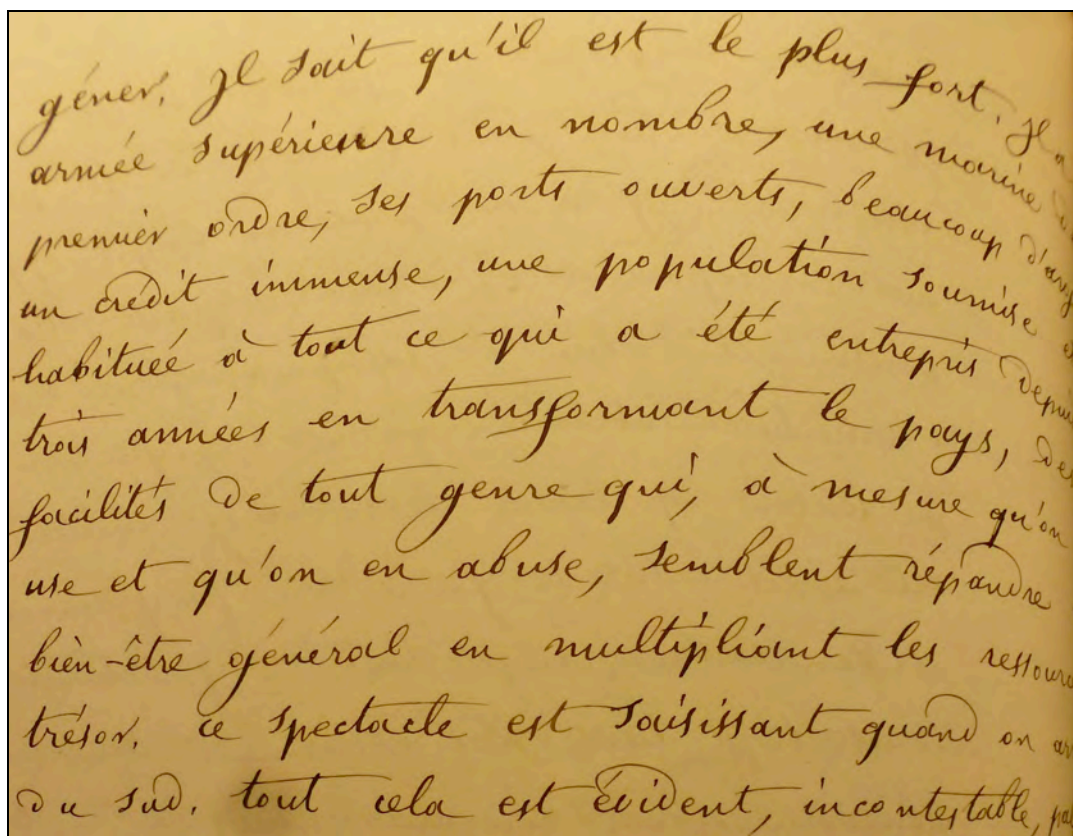 géner. Il sait qu'il est le plus fort. Il a
armée supérieure en nombre, une marine
premier ordre, ses ports ouverts, beaucoup
un crédit immense, une population soumise
habituée à tout ce qui a été entrepris depuis
trois années en transformant le pays, des
facilités de tout genre qui, à mesure qu'on
use et qu'on en abuse, semblent répandre
bien-être général en multipliant les
trésor. ce spectacle est saisissant quand on
du sud. tout cela est évident, incontestable,